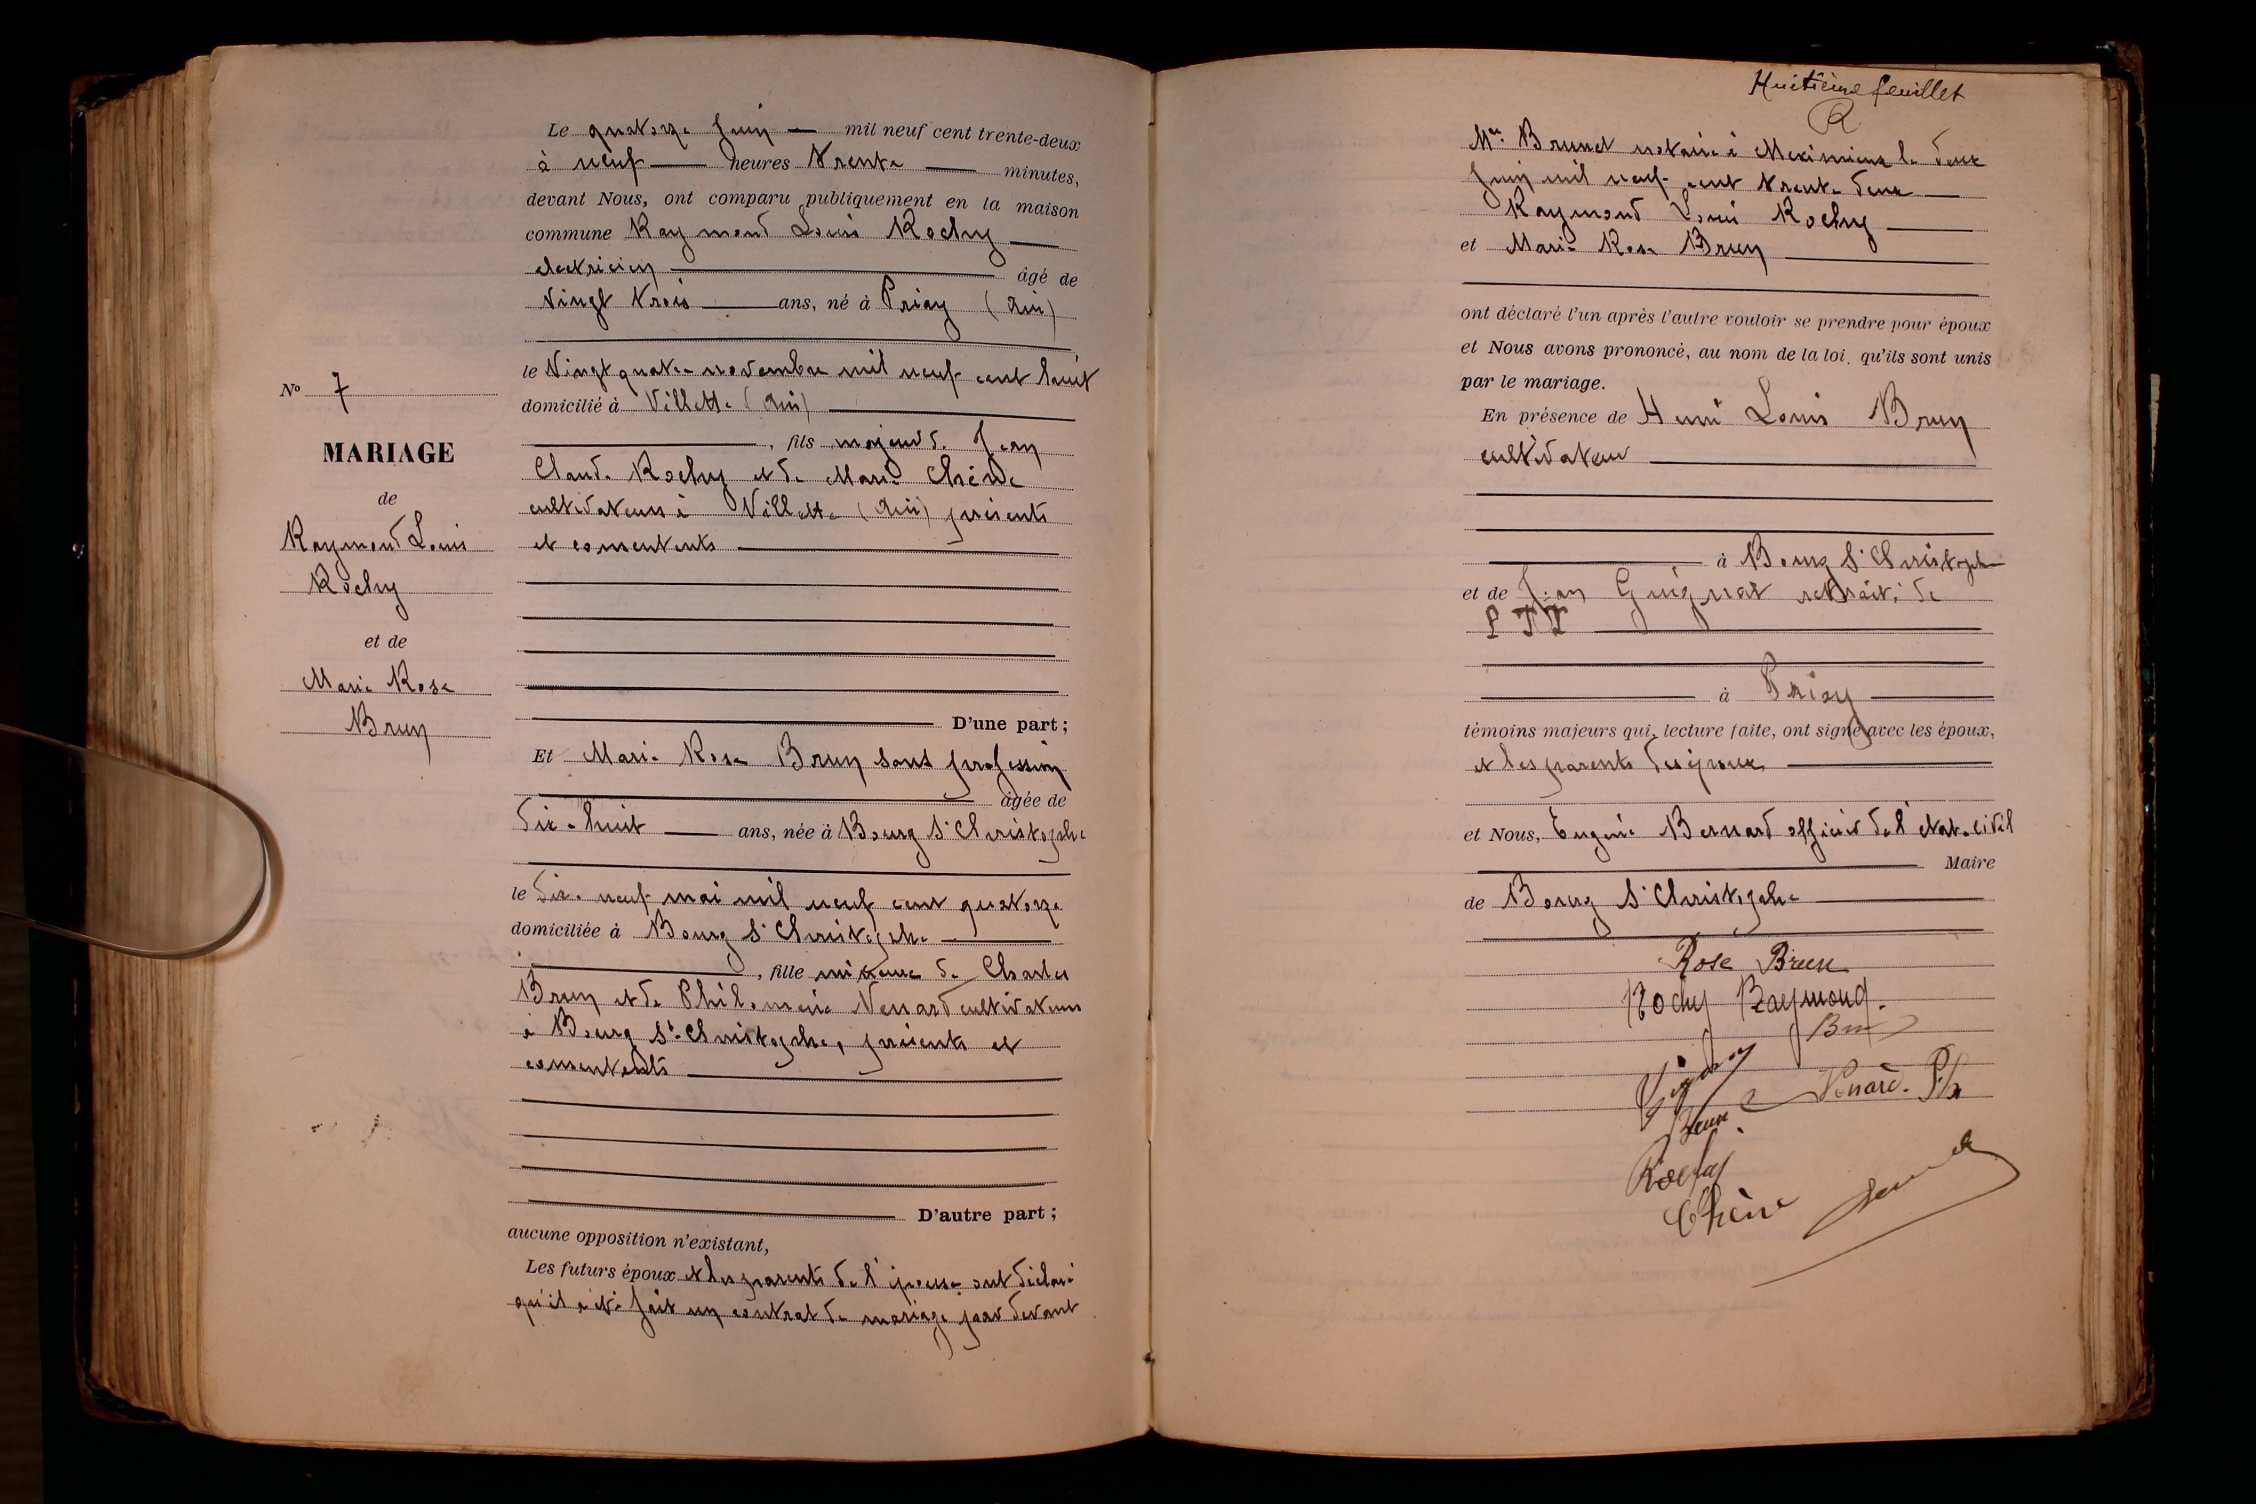 Le quatorze Juin mil neuf cent trente-deux
à neuf heures trente minutes,
devant Nous, ont comparu publiquement en la maison
commune Raymond Louis Rochy
électricien âgé de
Vingt trois ans, né à Priay (Ain)
le Vingt quatre novembre mil neuf cent huit
domicilié à Villette (Ain)
, fils majeur de Jean
Claude Rochy et de Marie Chêne
cultivateurs à Villette (Ain) présents
et consentents
D'une part ;
Et Marie Rose Brun sans profession
âgée de
dix-huit ans, née à Bourg St Christophe
le dix-neuf mai mil neuf cent quatorze
domiciliée à Bourg St Christophe
, fille mineure de Charles
Brun et de Philomène Venard cultivateurs
à Bourg St Christophe, présents et
consentents
D'autre part ;
aucune opposition n'existant,
Les futurs époux et les parents de l'épouse ont déclaré
qu'il a été fait un contrat de mariage par devant
No 7
MARIAGE
de
Raymond Louis
Rochy
et de
Marie Rose
Brun
Huitième feuillet
Me Brunet notaire à Meximieux le deux
Juin mil neuf cent trente deux
Raymond Louis Rochy
et Marie Rose Brun
ont déclaré l'un après l'autre vouloir se prendre pour époux
et Nous avons prononcé, au nom de la loi, qu'ils sont unis
par le mariage.
En présence de Henri Louis Brun
cultivateur
à Bourg St Christophe
et de Jean Guignat retraité de
P T T
à Priay
témoins majeurs qui, lecture faite, ont signé avec les époux,
et les parents des époux
et Nous, Eugène Bernard officier de l'état-civil
Maire
de Bourg St Christophe
Rose Brun
Rochy Raymond.
Brun
Venard. Ph
Rochy
Chêne